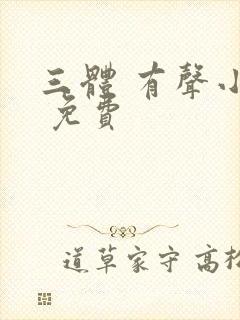 三體 有聲小
免費
道草家守 高松